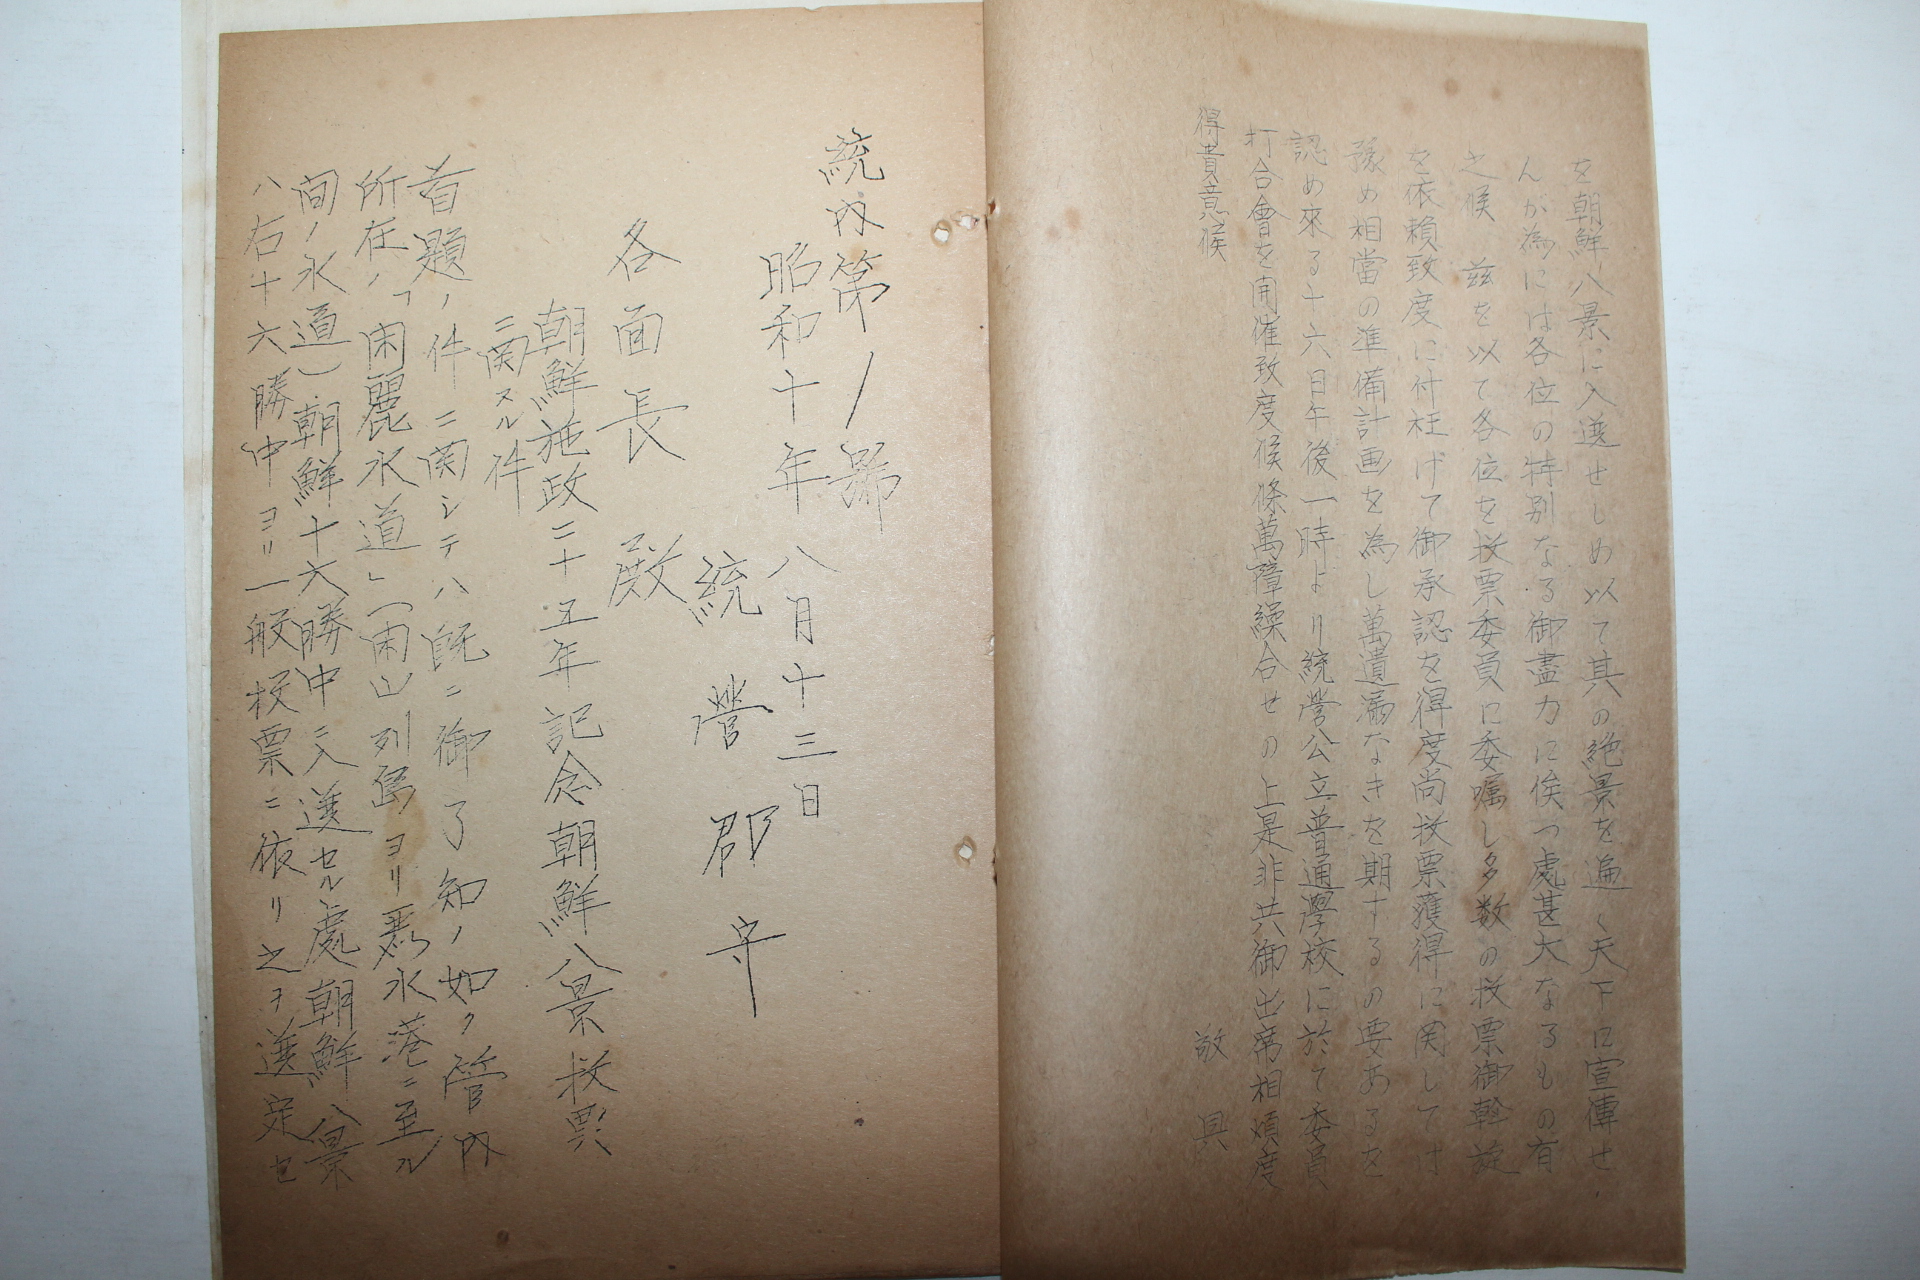 を朝鮮八景に入選せしめ以て其の絶景を遍く天下に宣傳せ
んが為には各位の特別なる御盡力に俟つ處甚大なるもの有
之候 茲を以て各位を投票委員に委嘱し多数の投票御斡旋
を依賴致度に付枉げて御承認を得度尚投票獲得に関しては
豫め相當の準備計画を為し萬遺漏なきを期するの要あるを
認め來る十六日午後一時より統營公立普通學校に於て委員
打合會を開催致度候條萬障繰合せの上是非共御出席相煩度
得貴意候
敬具
統内第ノ號
昭和十年八月十三日
統營郡守
各面長殿
朝鮮施政二十五年記念朝鮮八景投票
ニ関スル件
首題ノ件ニ関シテハ既ニ御了知ノ如ク管内
所在ノ「閑麗水道」(閑山列島ヨリ麗水港ニ至ル
間ノ水道)朝鮮十六勝中ニ入選セル處朝鮮八景
ハ右十六勝中ヨリ一般投票ニ依リ之ヲ選定セ